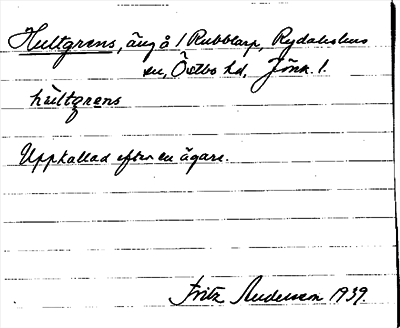 Hultgrens, äng å 1 Rubbtarp, Rydaholms
sn, Östbo hd, Jönk. l.
hùltgrens
Uppkallad efter en ägare.
Fritz Andersson 1939.